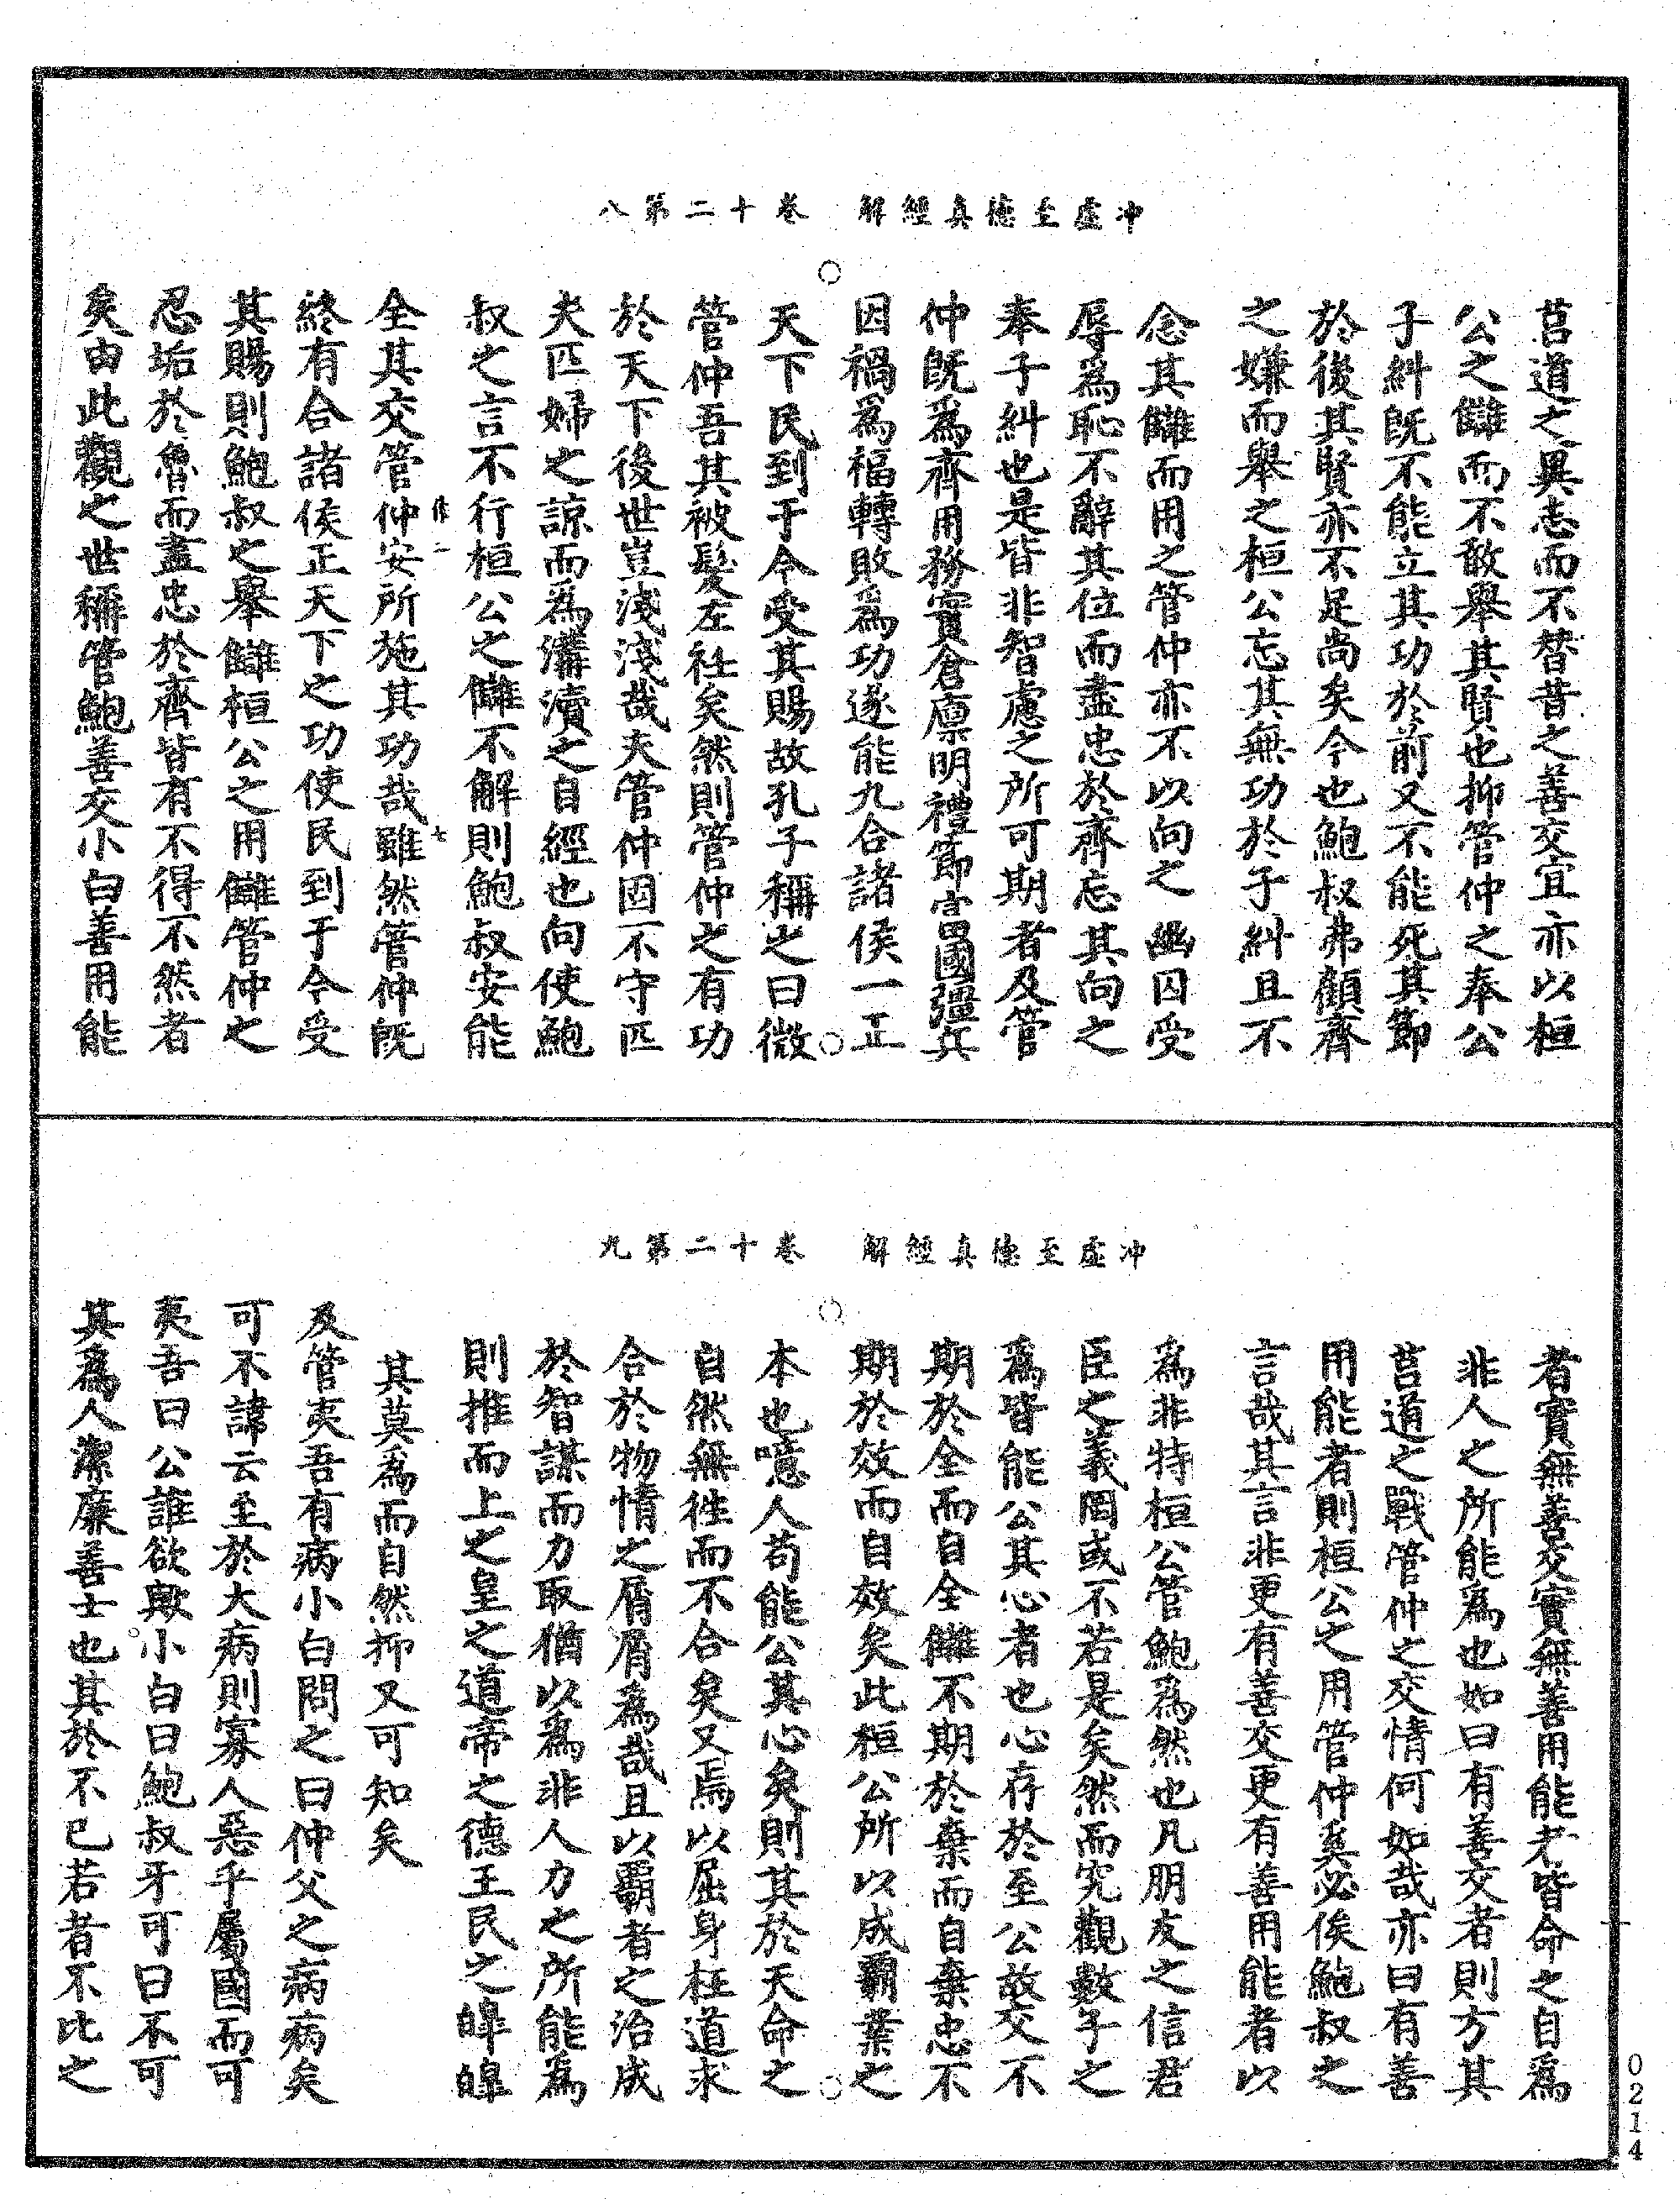 冲虛至德真經解　卷十二第八
莒道之異志而不替昔之善交宜亦以桓
公之讎而不敢舉其賢也抑管仲之奉公
子糾既不能立其功於前又不能死其節
於後其賢亦不足尚矣今也鮑叔弗顧齊
之嫌而舉之桓公忘其無功於子糾且不
念其讎而用之管仲亦不以向之幽囚受
辱爲恥不辭其位而盡忠於齊忘其向之
奉子糾也是皆非智慮之所可期者及管
仲既爲齊用務實倉廩明禮節富國彊兵
因禍爲福轉敗爲功遂能九合諸侯一正
天下民到于今受其賜故孔子稱之曰微
管仲吾其被髮左衽矣然則管仲之有功
於天下後世豈淺淺哉夫管仲固不守匹
夫匹婦之諒而爲溝瀆之自經也向使鮑
叔之言不行桓公之讎不解則鮑叔安能
全其交管仲安所施其功哉雖然管仲既
終有合諸侯正天下之功使民到于今受
其賜則鮑叔之舉讎桓公之用讎管仲之
忍垢於魯而盡忠於齊皆有不得不然者
矣由此觀之世稱管鮑善交小白善用能
冲虛至德真經解　卷十二第九
者實無善交實無善用能者皆命之自爲
非人之所能爲也如曰有善交者則方其
莒道之戰管仲之交情何如哉亦曰有善
用能者則桓公之用管仲奚必俟鮑叔之
言哉其言非更有善交更有善用能者以
爲非特桓公管鮑爲然也凡朋友之信君
臣之義罔或不若是矣然而究觀數子之
爲皆能公其心者也心存於至公故交不
期於全而自全讎不期於棄而自棄忠不
期於效而自效矣此桓公所以成霸業之
本也噫人苟能公其心矣則其於天命之
自然無徃而不合矣又焉以屈身枉道求
合於物情之屑屑爲哉且以霸者之治成
於智謀而力取猶以爲非人力之所能爲
則推而上之皇之道帝之德王民之皞皞
其莫爲而自然抑又可知矣
及管夷吾有病小白問之曰仲父之病病矣
可不諱云至於大病則寡人惡乎屬國而可
夷吾曰公誰欲歟小白曰鮑叔牙可曰不可
其爲人潔廉善士也其於不已若者不比之
0214